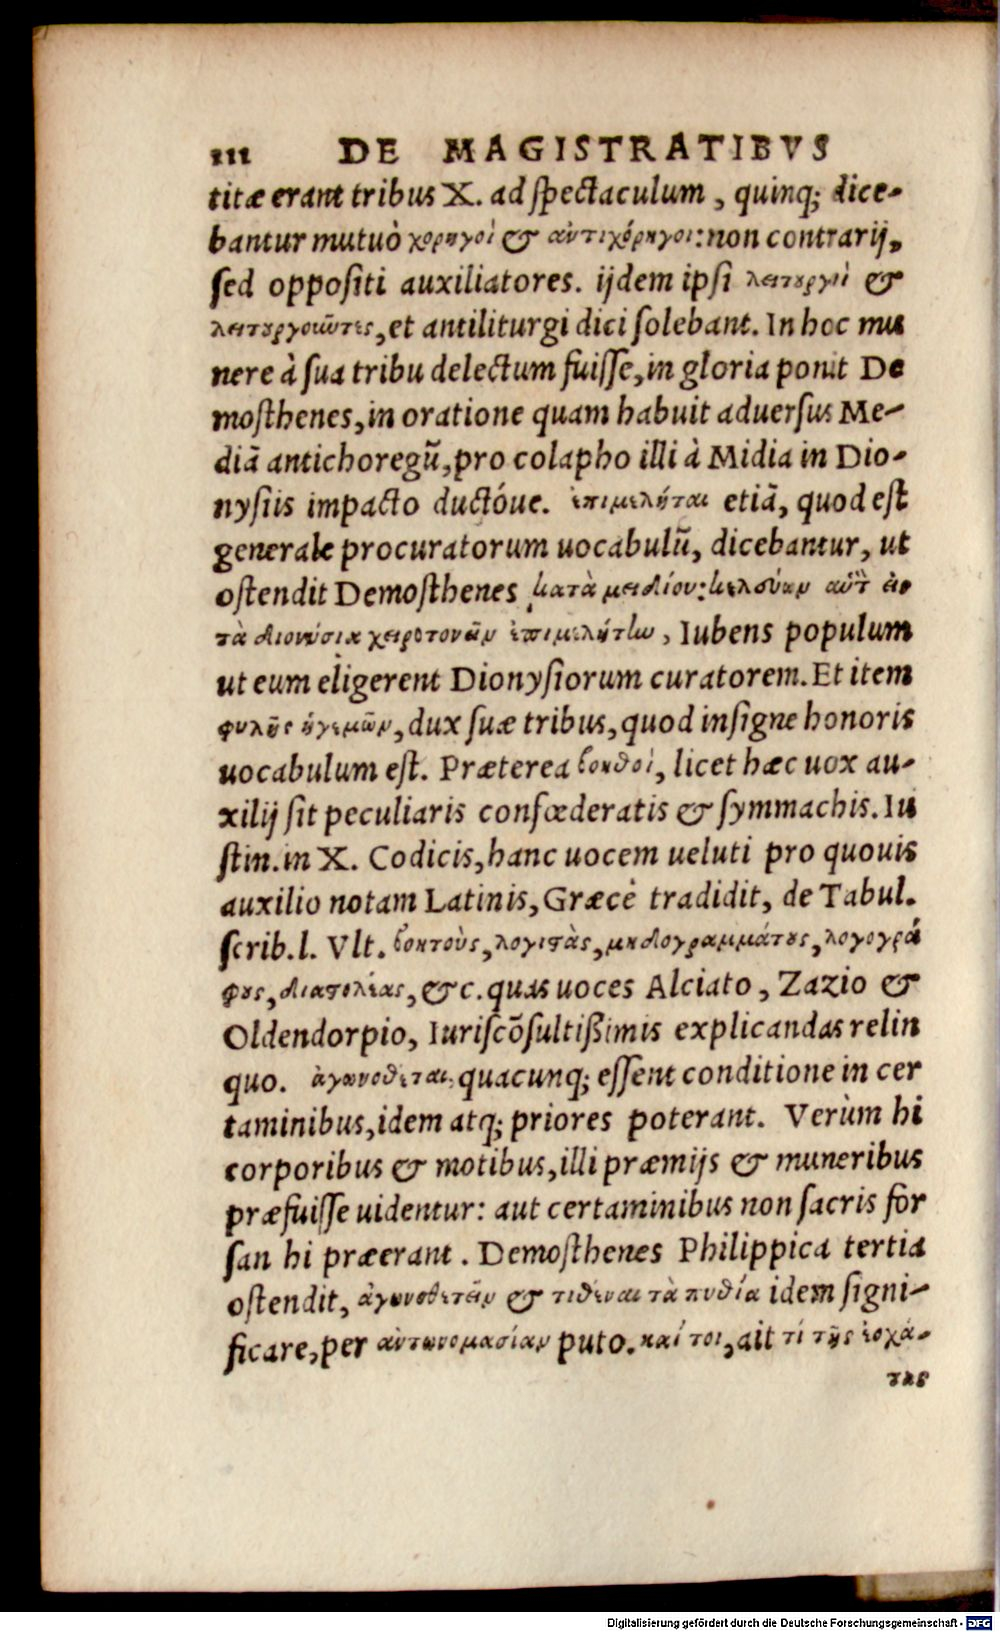 111 DE MAGISTRATIBVS
titæ erant tribus X. ad ſpectaculum, quinq; dice-
bantur mutuò χορηγοὶ & ἀντιχόρηγοι: non contrarij,
ſed oppoſiti auxiliatores. ijdem ipſi λειτουργοὶ &
λειτουργοιῶτες, et antiliturgi dici ſolebant. In hoc mu
nere à ſua tribu delectum fuiſſe, in gloria ponit De
moſthenes, in oratione quam habuit aduerſus Me-
diã antichoregũ, pro colapho illi à Midia in Dio-
nyſiis impacto ductóue. ἐπιμελήται etiã, quod eſt
generale procuratorum uocabulũ, dicebantur, ut
oſtendit Demoſthenes κατὰ μειδίου: κελεύων
τὰ διονύσια χειροτονεῖν ἐπιμελήτω, Iubens populum
ut eum eligerent Dionyſiorum curatorem. Et item
φυλῆς ἡγεμῶν, dux ſuæ tribus, quod inſigne honoris
uocabulum eſt. Præterea βοηθοὶ, licet hæc uox au-
xilij ſit peculiaris confœderatis & ſymmachis. Iu
ſtin. in X. Codicis, hanc uocem ueluti pro quouis
auxilio notam Latinis, Græcè tradidit, de Tabul.
ſcrib. l. Vlt. βοητοὺς, λογιστὰς, μηδιογραμμάτους, λογογρά
φους, διαστολέας, &c. quas uoces Alciato, Zazio &
Oldendorpio, Iuriſcõſultißimis explicandas relin
quo. ἀγωνοθέται, quacunq; eſſent conditione in cer
taminibus, idem atq; priores poterant. Verùm hi
corporibus & motibus, illi præmijs & muneribus
præfuiſſe uidentur: aut certaminibus non ſacris for
ſan hi præerant. Demoſthenes Philippica tertia
oſtendit, ἀγωνοθετεῖν & τιθέναι τὰ πυθία idem ſigni-
ficare, per ἀντωνομασίαν puto. καί τοι, ait τί τῆς ἐσχά-
της
Digitalisierung gefördert durch die Deutsche Forschungsgemeinschaft - DFG